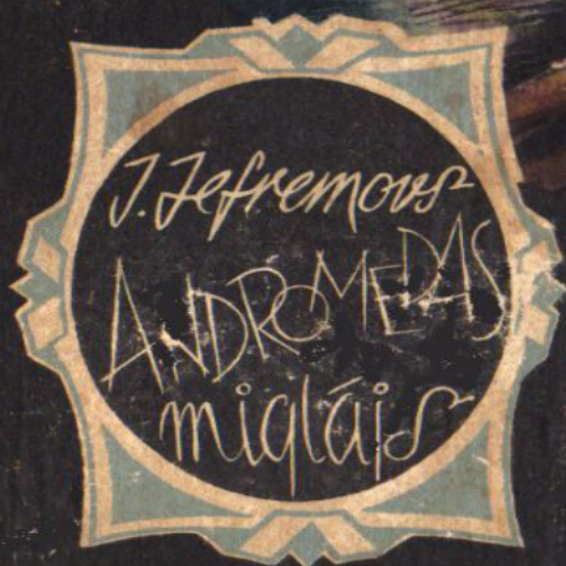 J. Jefremovs
ANDROMEDAS
miglájs